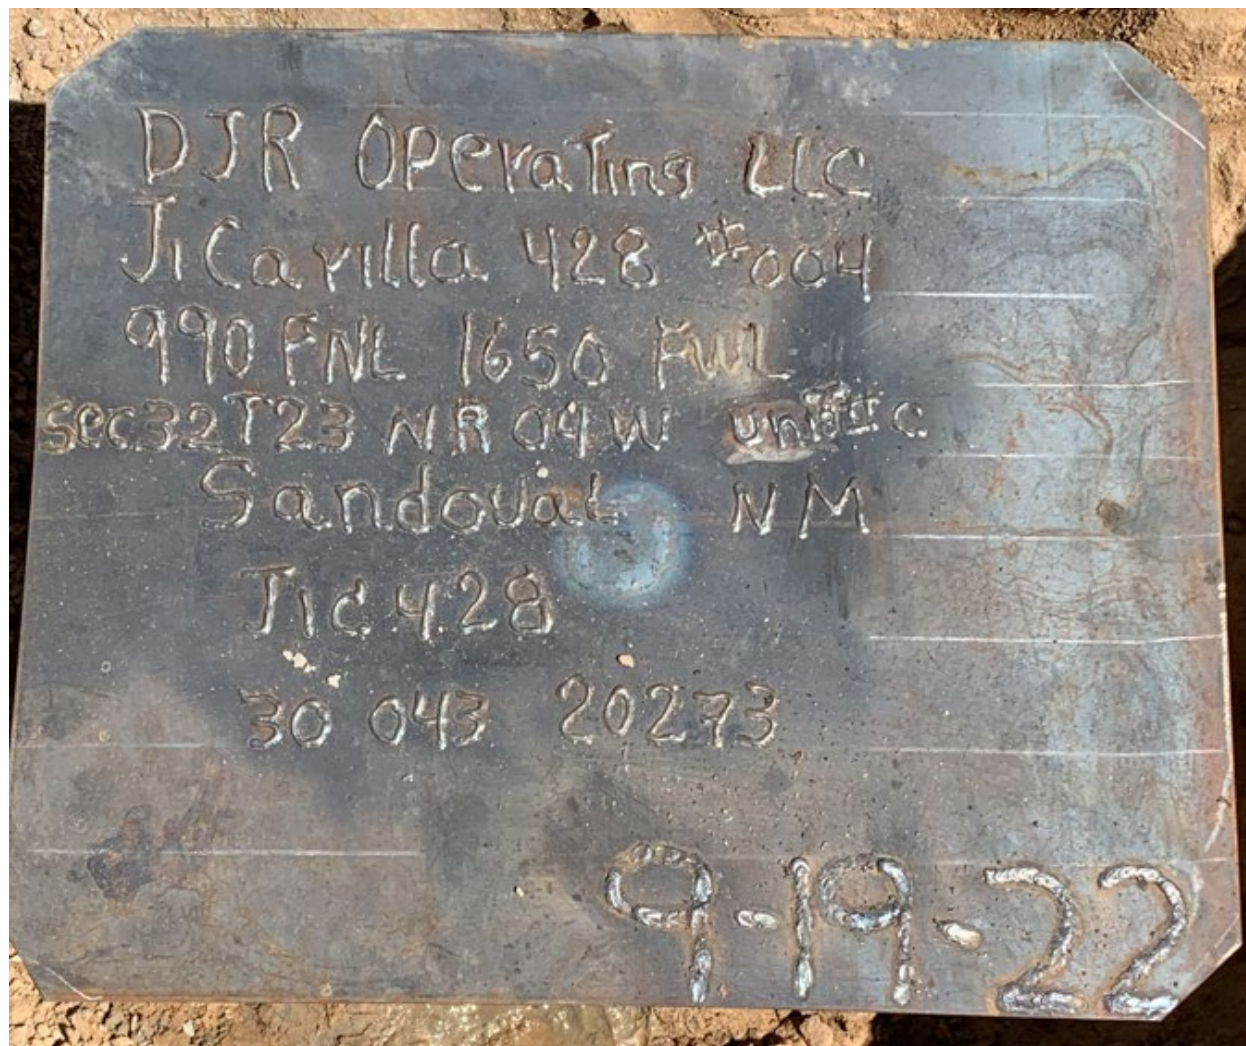 DJR Operating LLC
Jicarilla 428 #004
990 FNL 1650 FWL
Sec 32 T23 N R 04 W unit# C
Sandoval NM
Jic 428
30 043 20273
9-19-22